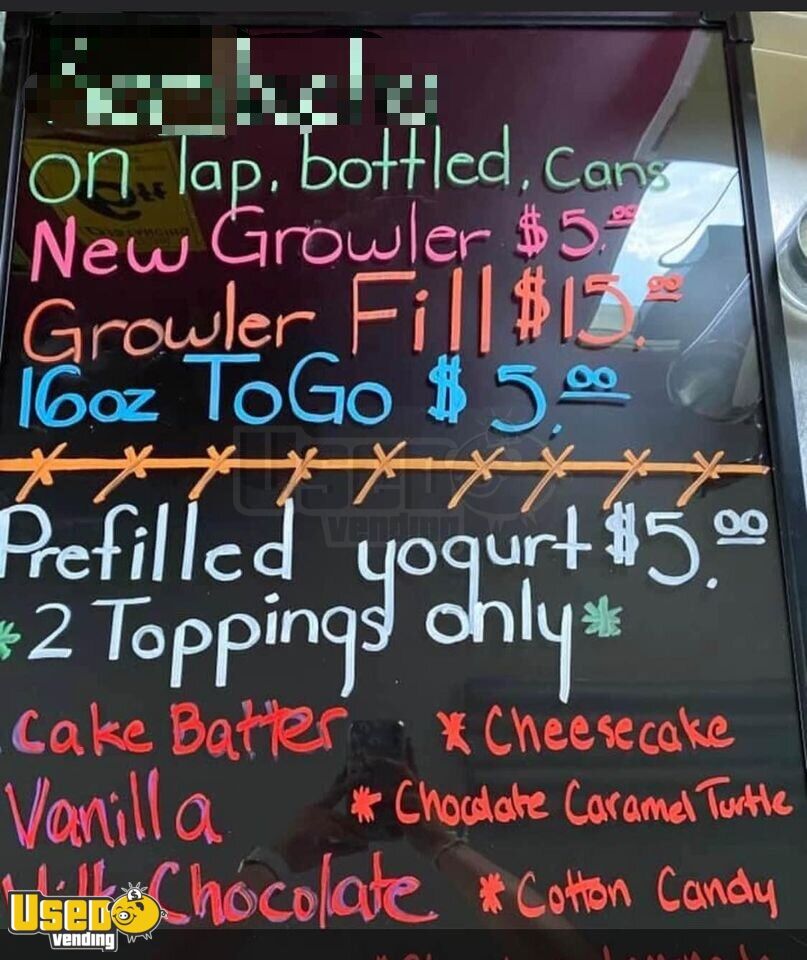 on Tap, bottled, Cans
New Growler $5.00
Growler Fill $15.00
16oz ToGo $5.00
Prefilled yogurt $5.00
*2 Toppings only*
Cake Batter * Cheesecake
Vanilla * Chocolate Caramel Turtle
Milk Chocolate * Cotton Candy
USED
vending
Used
vending